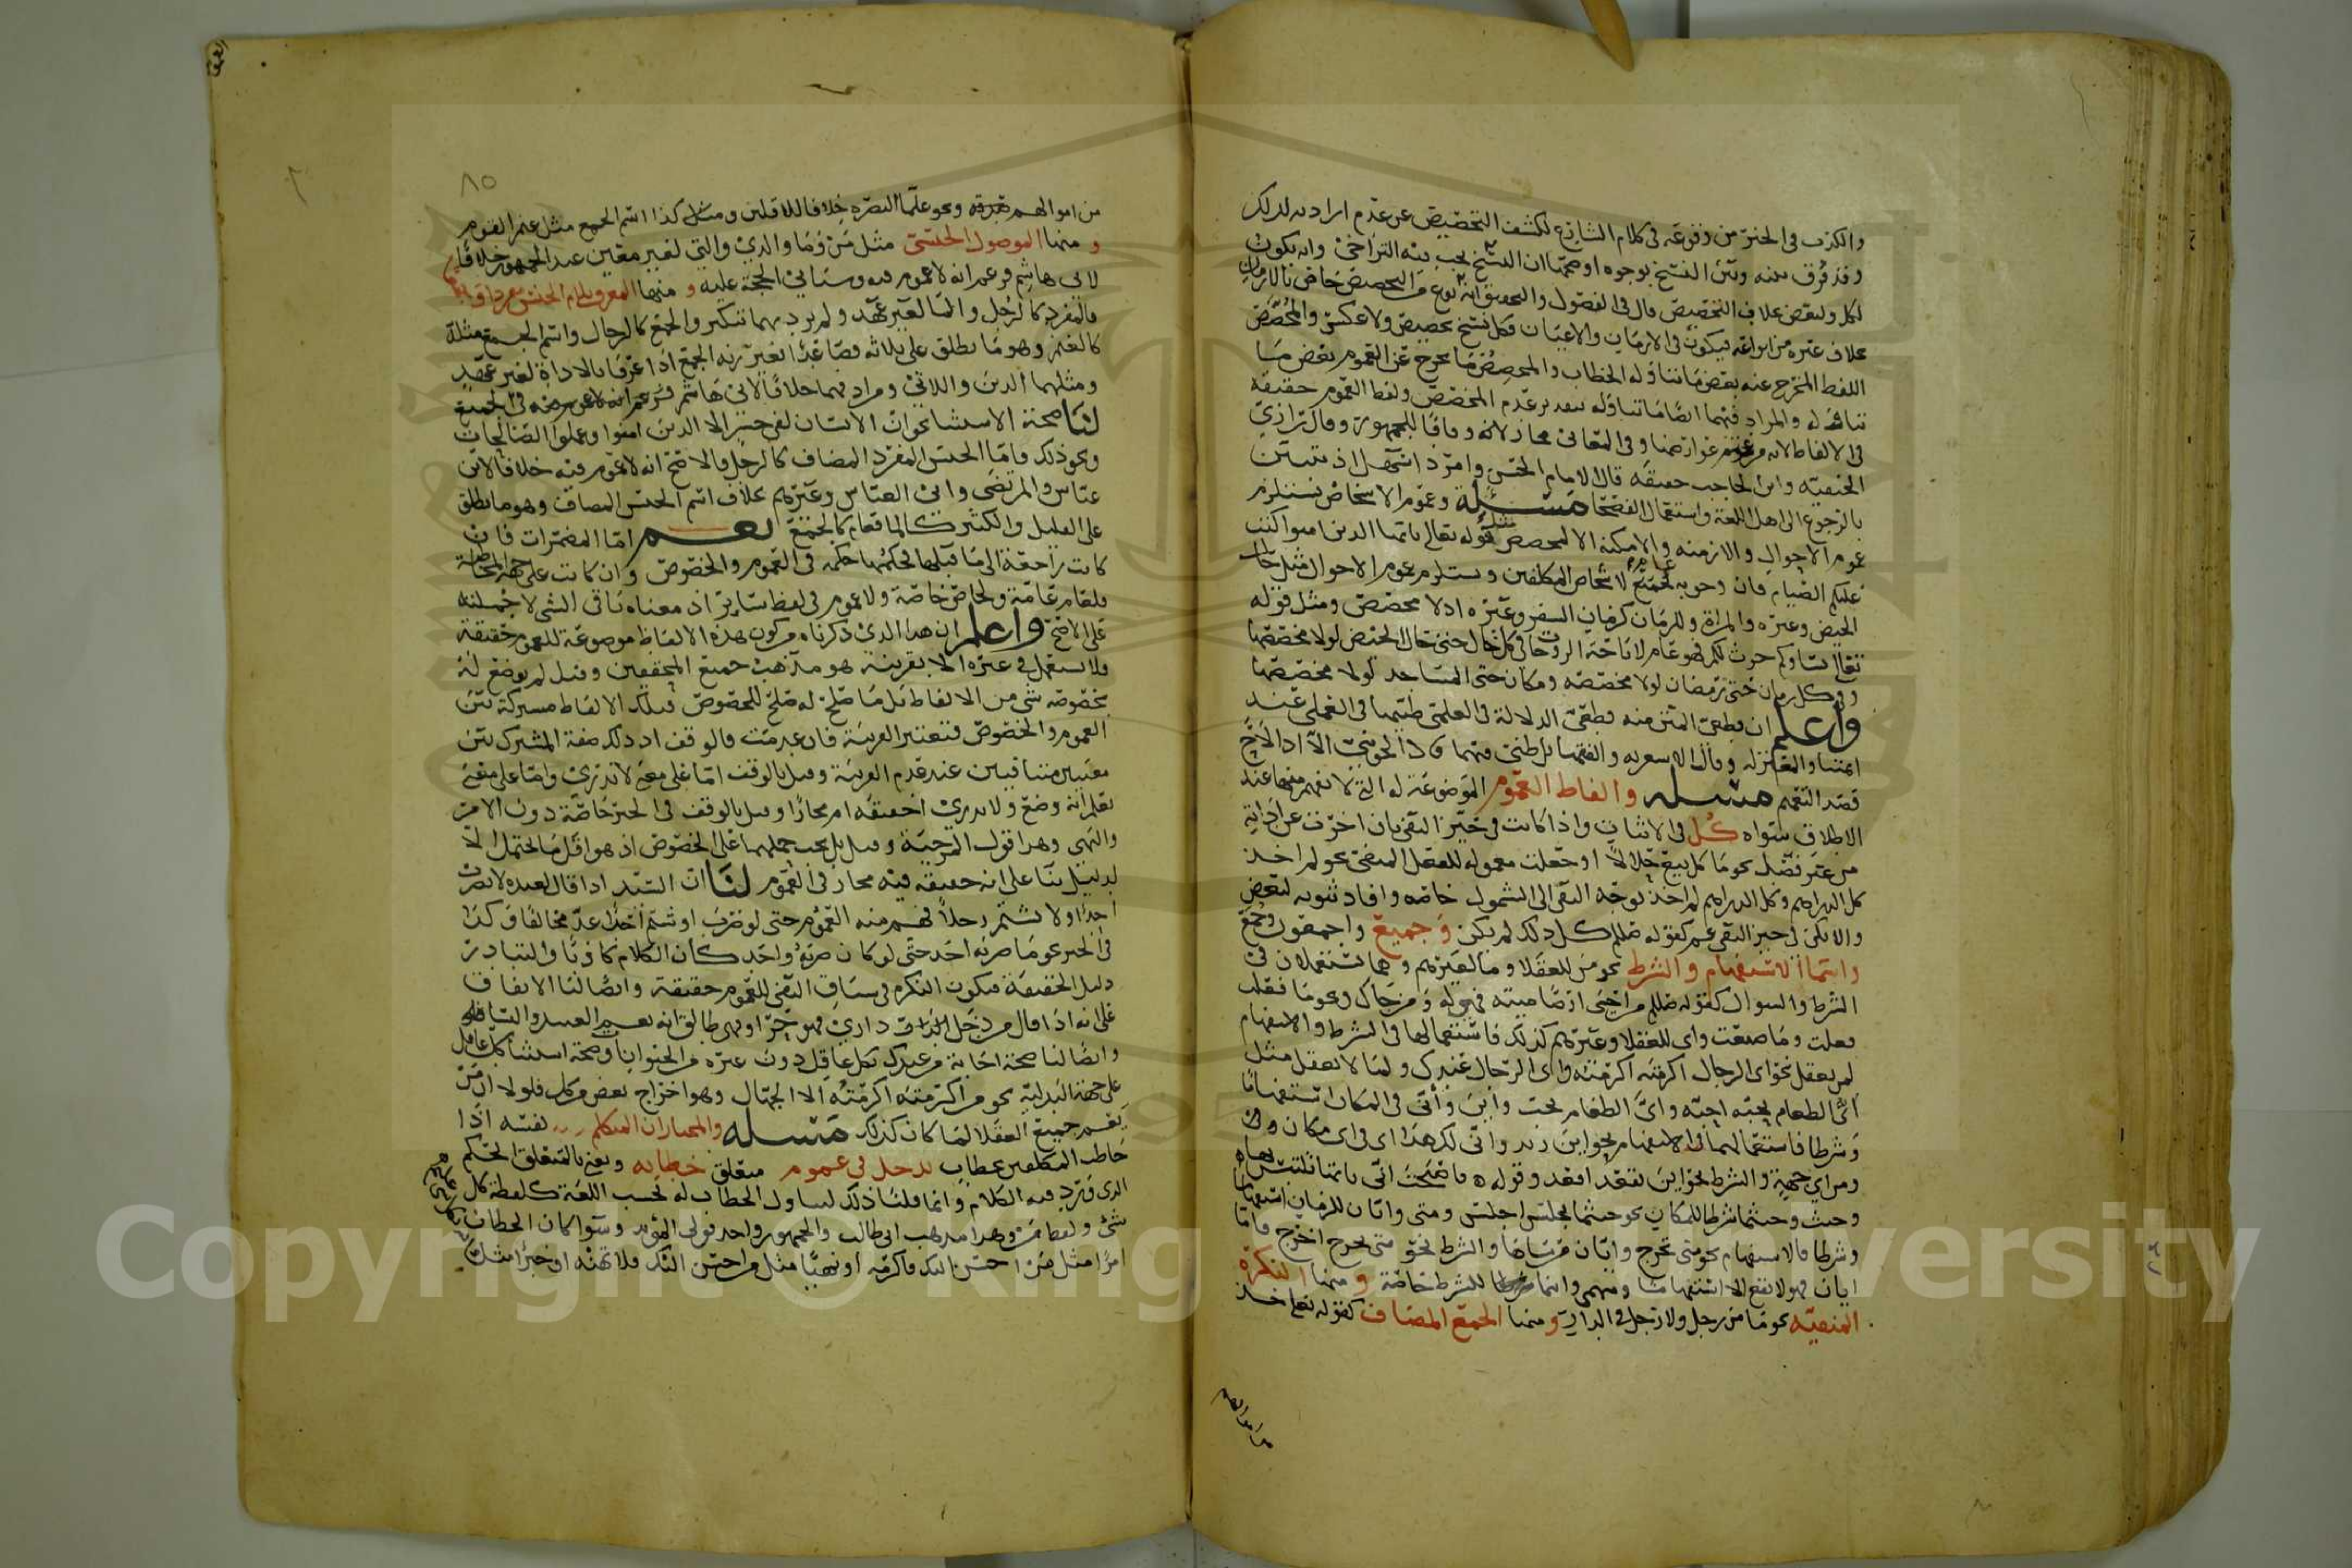 والكذب في الخبر من وقوعه في كلام الشارع لكشف التخصيص عن عدم ارادته لذلك
وقد فرق بينه وبين النسخ بوجوه اوضحها ان النسخ يجب فيه التراخي وانه يكون
لكل ولبعض بخلاف التخصيص قال في الفصول والتحقيق انه نوع من التخصيص خاص بالازمان
بخلاف غيره من انواعه فيكون في الازمان والاعيان فكل نسخ تخصيص ولا عكس والمخصَّص
اللفظ المخرج عنه بعض ما تناوله الخطاب والمخصِّص ما يخرج عن العموم بعض ما
تناوله والمراد فيهما ايضا ما تناوله بتقدير عدم المخصص ولفظ العموم حقيقة
في الالفاظ لانه من عوارضها وفي المعاني مجاز لانه وفاقا للجمهور وقال الرازي
الحنفيه وابن الحاجب حقيقه قال الامام الحسن وامر ذا سهل اذ تتبين
بالرجوع الى اهل اللغة واستعمال الفصحا مسئلة وعموم الاشخاص يستلزم
عموم الاحوال والازمنه والامكنه الا لمخصص مثل قوله تعالى ياايها الذين امنوا كتب
عليكم الصيام فان وجوبه لجميع الاشخاص المكلفين ويستلزم عموم الاحوال مثل حال
الحيض وغيره والمراة وللزمان كزمان السفر وغيره اذ لا مخصص ومثل قوله
تعالى نساؤكم حرث لكم فهو عام لاباحة الزوجات في كل حال حتى حال الحيض لولا مخصصها
وفي كل زمان حتى رمضان لولا مخصصه ومكان حتى المساجد لولا مخصصها
واعلم ان قطعي المتن منه قطعي الدلالة في العلمي ظنيها في العملي عند
ائمتنا والمعتزله وقال الاشعريه والفقها بل ظني فيهما قال الجويني الا اذا لاح
قصد التعميم مسئله والفاظ العموم الموضوعة له التي لا يفهم منها عند
الاطلاق سواه كُل في الاثبات واذا كانت في حيز النفي بان اخرت عن اداته
من غير فصل نحو ما كل بيع حلالا او جعلت معموله للفعل المنفي نحو لم اخذ
كل الدراهم وكل الدراهم لم اخذ توجه النفي الى الشمول خاصه وافاد ثبوته لبعض
والا تكن في حيز النفي عم كقوله صللم كل ذلك لم يكن وجميع واجمعون وجُمع
واسما الاستفهام والشرط نحو من للعقلا وما لغيرهم وهما تستعملان في
الشرط والسوال كقوله صللم من احيى ارضا ميته فهي له ومن جاك ونحو ما فعلت
فعلت وما صنعت واي للعقلا وغيرهم كذلك فاستعمالها في الشرط والاستفهام
لمن يعقل نحو اي الرجال اكرمته اكرمته واي الرجال عندك ولما لا يعقل مثل
اي الطعام تحبه احبه واي الطعام تحب واين وانى في المكان استفهاما
وشرطا فاستعمالهما في الاستفهام نحو اين زيد وانى لك هذا اي في اي مكان
ومن اي جهة والشرط نحو اين تقعد اقعد وقوله ه فاصبحت انى تاتها تلتبس بها
وحيث وحيثما شرطا للمكان نحو حيثما تجلس اجلس ومتى وايان للزمان استفهاما
وشرطا فالاستفهام نحو متى تخرج وايان مرساها والشرط نحو متى تخرج اخرج فاما
ايان فهو لا يقع الا استفهاما ومهما واينما للشرط خاصة ومنها النكرة
المنفيه نحو ما من رجل ولا رجل في الدار ومنها الجمع المضاف كقوله تعالى خذ
من اموالهم
٨٥
من اموالهم صدقه ونحو علما البصره خلافا للاقلين ومثل كذا اسم الجمع مثل غنم القوم
و منها الموصول الجنسي مثل مَن وما والذي والتي لغير معين عند الجمهور خلافا
لابي هاشم فزعم انه لا عموم فيه وستاتي الحجة عليه و منها المعرف بلام الجنس مفردا
فالمفرد كالرجل والما لغير عهد ولم يرد بهما تنكير والجمع كالرجال واسم الجمع مثله
كالغنم وهو ما يطلق على ثلاثه فصاعدا بغير زنه الجمع اذا عرفا بالاداة لغير عهد
ومثلهما الذين واللاتي ومراد بهما خلافا لابي هاشم فزعم انه لا عموم فيه في الجميع
لنا صحة الاستثنا نحو ان الانسان لفي خسر الا الذين امنوا وعملوا الصالحات
ونحو ذلك فاما الجنس المفرد المضاف كالرجل فالاصح انه لا عموم فيه خلافا لابن
عباس والمرتضى وابي العباس وغيرهم بخلاف اسم الجنس المضاف وهو ما يطلق
على القليل والكثير كالما فعام كالجمع نعم اما المضمرات فان
كانت راجعة الى ما قبلها فحكمها حكمه في العموم والخصوص وان كانت على جهة المخاطبة
فلعام عامة ولخاص خاصة ولا عموم في لفظ سائر اذ معناه باقي الشي لا جملته
على الاصح واعلم ان هذا الذي ذكرناه من كون هذه الالفاظ موضوعة للعموم حقيقة
ولا تستعمل في غيره الا بقرينة هو مذهب جميع المحققين وقيل لم يوضع له
بخصوصه شي من الالفاظ بل ما صلح له صلح للخصوص فتلك الالفاظ مشتركة بين
العموم والخصوص فتعتبر القرينة فان عدمت فالوقف اذ ذلك صفة المشترك بين
معنيين متنافيين عند عدم القرينة وقيل بالوقف اما على معنى لا ندري واما على معنى
نعلم انه وضع ولا ندري احقيقه ام مجازا وقيل بالوقف في الخبر خاصة دون الامر
والنهي وهذا قول المرجية وقيل بل يجب حملها على الخصوص اذ هو اقل ما يحتمل الا
لدليل بنا على انه حقيقه فيه مجاز في العموم لنا ان السيد اذا قال لعبده لا تضرب
احدا ولا تشتم رجلا فهم منه العموم حتى لو ضرب او شتم احدا عد مخالفا وكذا
في الخبر نحو ما ضربه احد حتى لو كان ضربه واحد كان الكلام كاذبا والتبادر
دليل الحقيقة فتكون النكره في سياق النفي للعموم حقيقة وايضا لنا الاتفاق
على انه اذا قال من دخل داري فهو حر او فهي طالق انه يعم العبيد والنسا
وايضا لنا صحة اجابة من عندك بكل عاقل دون غيره من الحيوان وصحة استثنا كل عاقل
على جهة البدلية نحو من اكرمته اكرمته الا الجهال وهو اخراج بعض من كل فلولا ان من
يعم جميع العقلا لما كان كذلك مسئله والمختار ان المتكلم نفسه اذا
خاطب المكلفين بخطاب يدخل في عموم متعلق خطابه ونعني بالمتعلق الحكم
الذي ورد فيه الكلام وانما قلنا ذلك لتناول الخطاب له بحسب اللغة كلفظة كل
شي ولفظ من وهذا مذهب ابي طالب والجمهور واحد قولي المؤيد وسوا كان الخطاب
امرا مثل من احسن اليك فاكرمه او نهيا مثل من احسن اليك فلا تهنه او خبرا مثل
Copyright © King Saud University